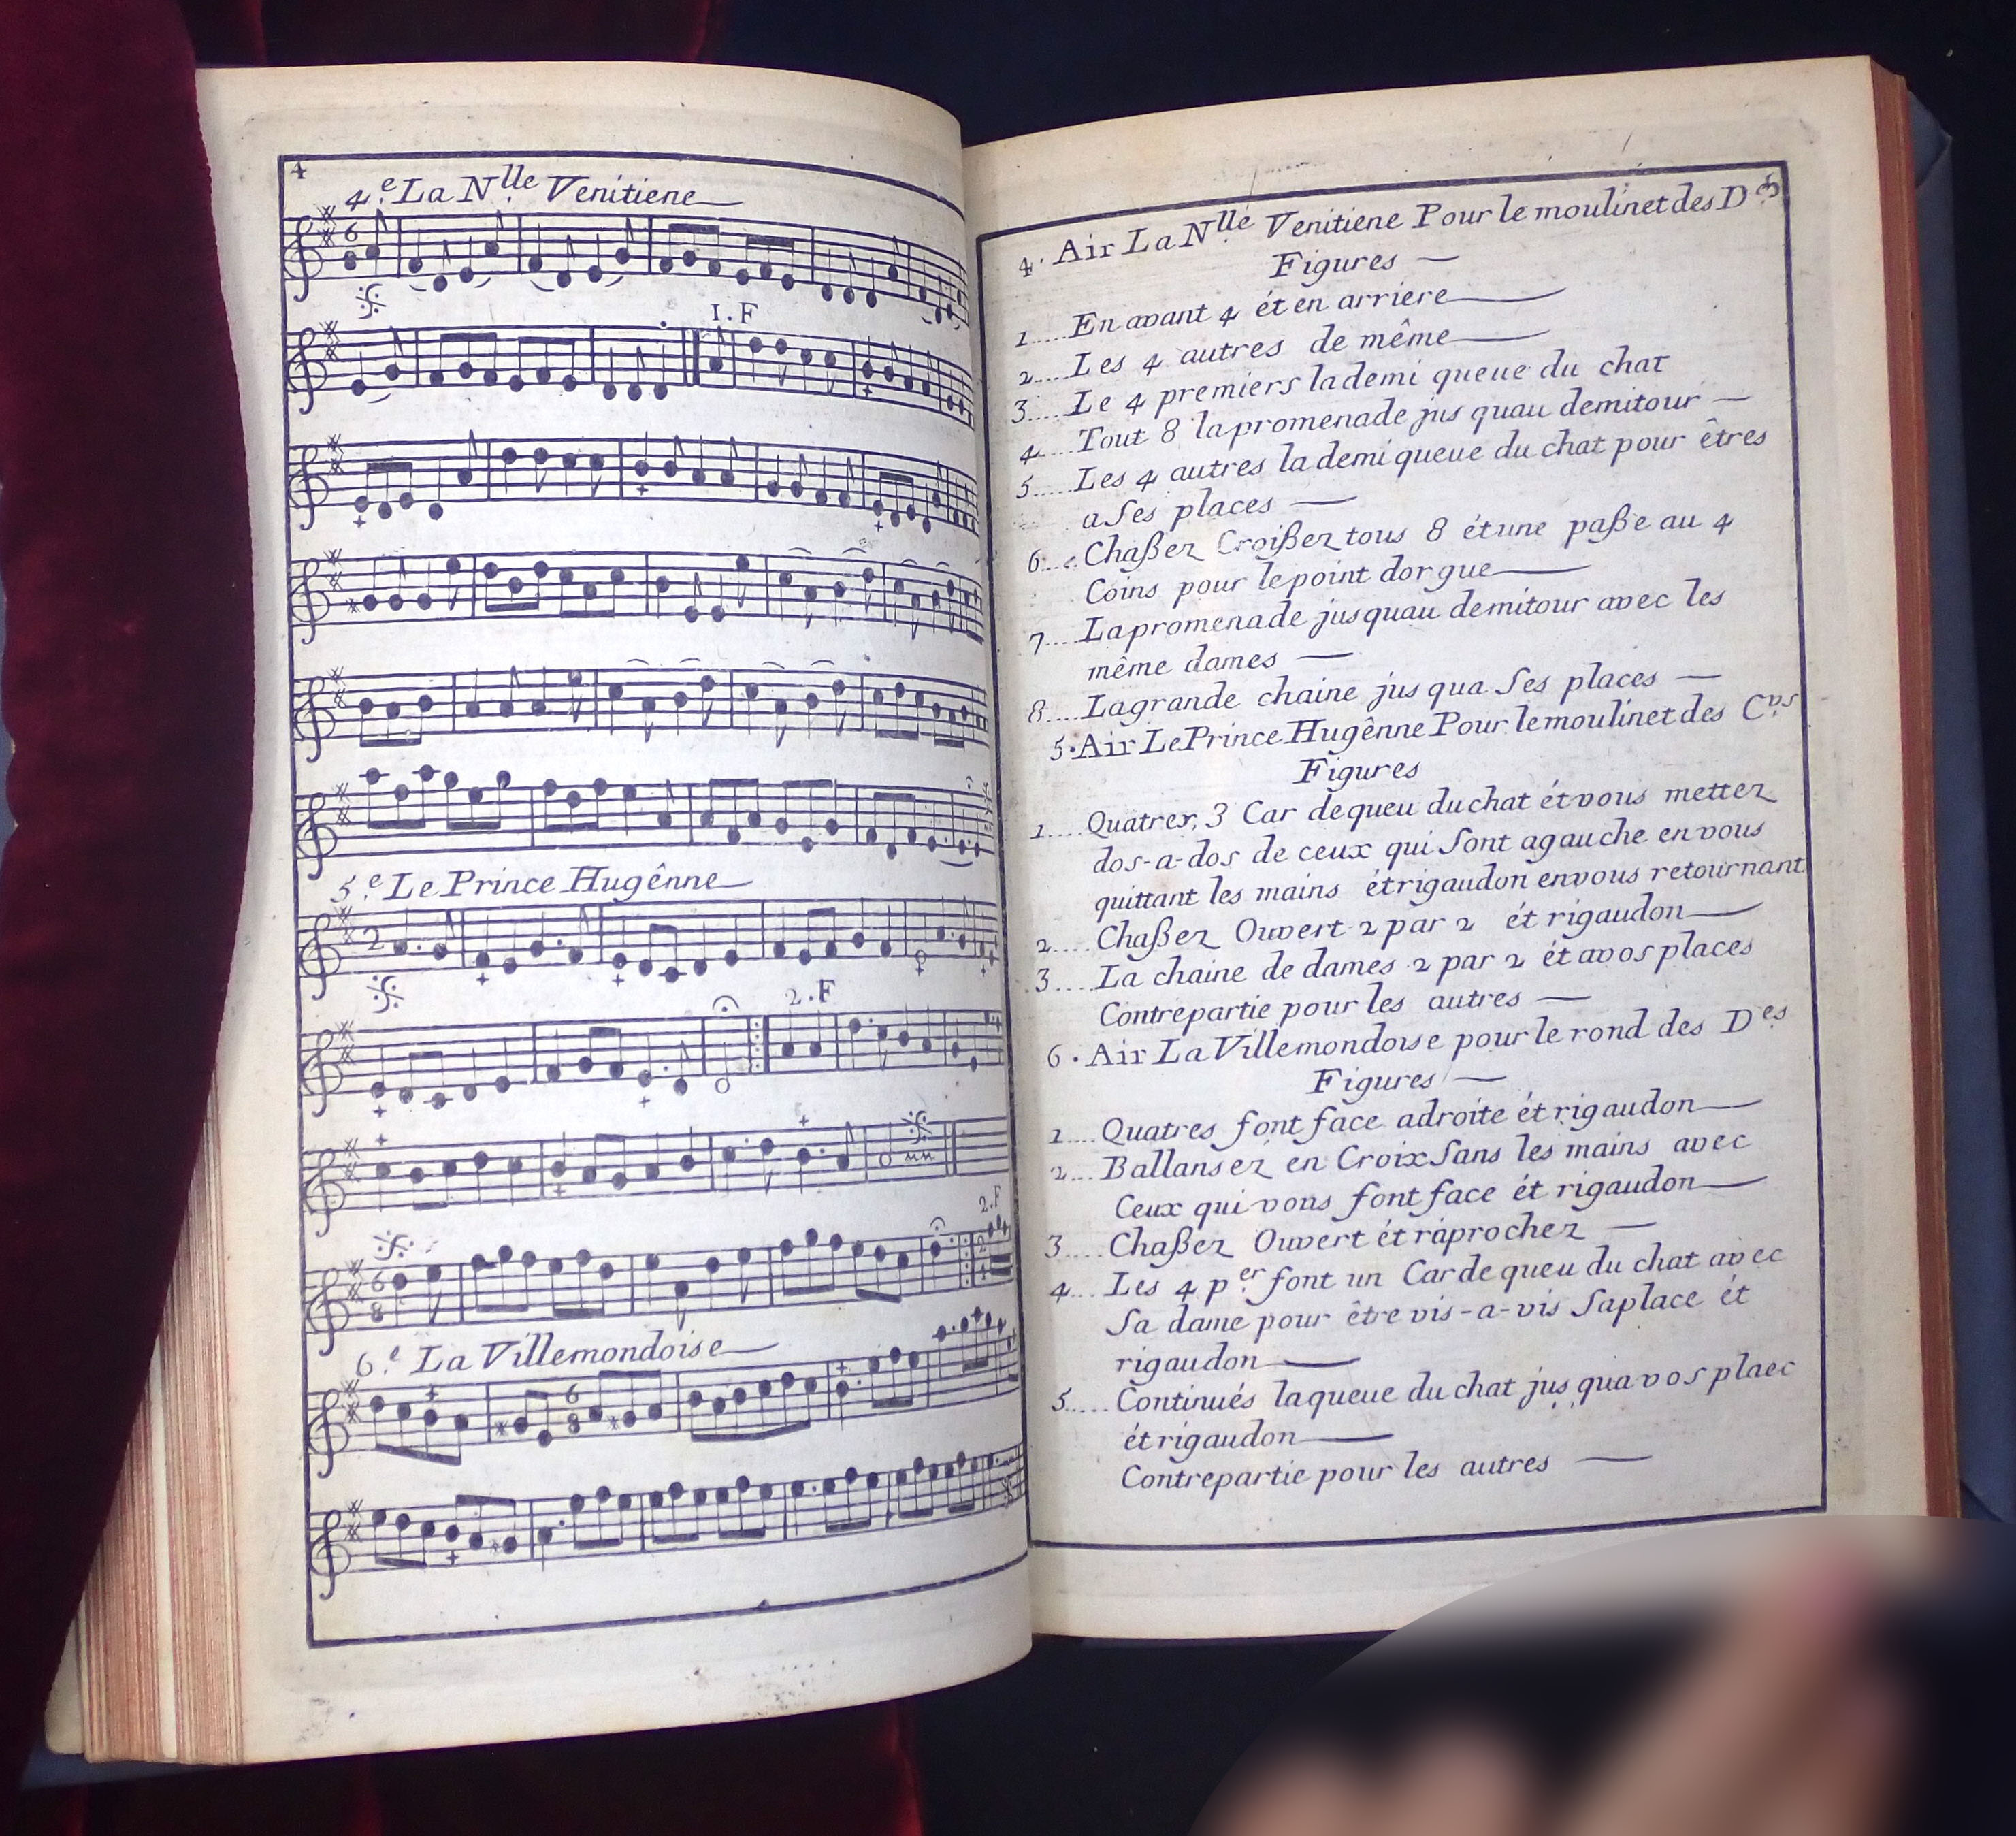 4
4.e La N.lle Venitiene
6
8
1.F
5.e Le Prince Hugênne
2
2.F
6
8
2.F
2
4
6.e La Villemondoise
6
8
4. Air La N.lle Venitiene Pour le moulinet des D.es
Figures
1.... En avant 4 ét en arriere
2.... Les 4 autres de même
3.... Le 4 premiers la demi queue du chat
4.... Tout 8 la promenade jus quau demitour
5.... Les 4 autres la demi queue du chat pour êtres
a ses places
6... Chaßez Croißez tous 8 ét une paße au 4
Coins pour le point dorgue
7.... La promenade jusquau demitour avec les
même dames
8.... La grande chaine jus qua ses places
5. Air Le Prince Hugênne Pour le moulinet des C.vs
Figures
1.... Quatrex, 3 Car de queu du chat ét vous mettez
dos-a-dos de ceux qui sont a gauche en vous
quittant les mains ét rigaudon en vous retournant
2.... Chaßez Ouvert 2 par 2 ét rigaudon
3.... La chaine de dames 2 par 2 ét a vos places
Contrepartie pour les autres
6. Air La Villemondoise pour le rond des D.es
Figures
1.... Quatres font face a droite ét rigaudon
2.... Ballansez en Croix sans les mains avec
Ceux qui vous font face ét rigaudon
3.... Chaßez Ouvert ét raprochez
4... Les 4 p.er font un Car de queu du chat avec
sa dame pour être vis-a-vis sa place ét
rigaudon
5.... Continués la queue du chat jus qua vos plaec
ét rigaudon
Contrepartie pour les autres